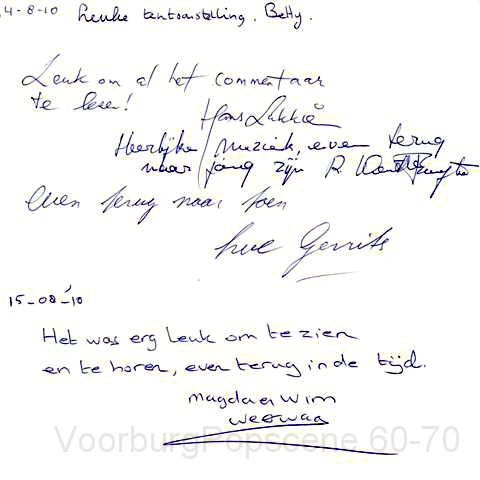 4-8-10 Leuke tentoonstelling. Betty.
Leuk om al het commentaar
te lezen!
Hans
Heerlijke muziek, even terug
naar jong zijn R
Even terug naar toen
Gerrits
15-08-10
Het was erg leuk om te zien
en te horen, even terug in de tijd.
Magda en Wim
VoorburgPopscene 60-70